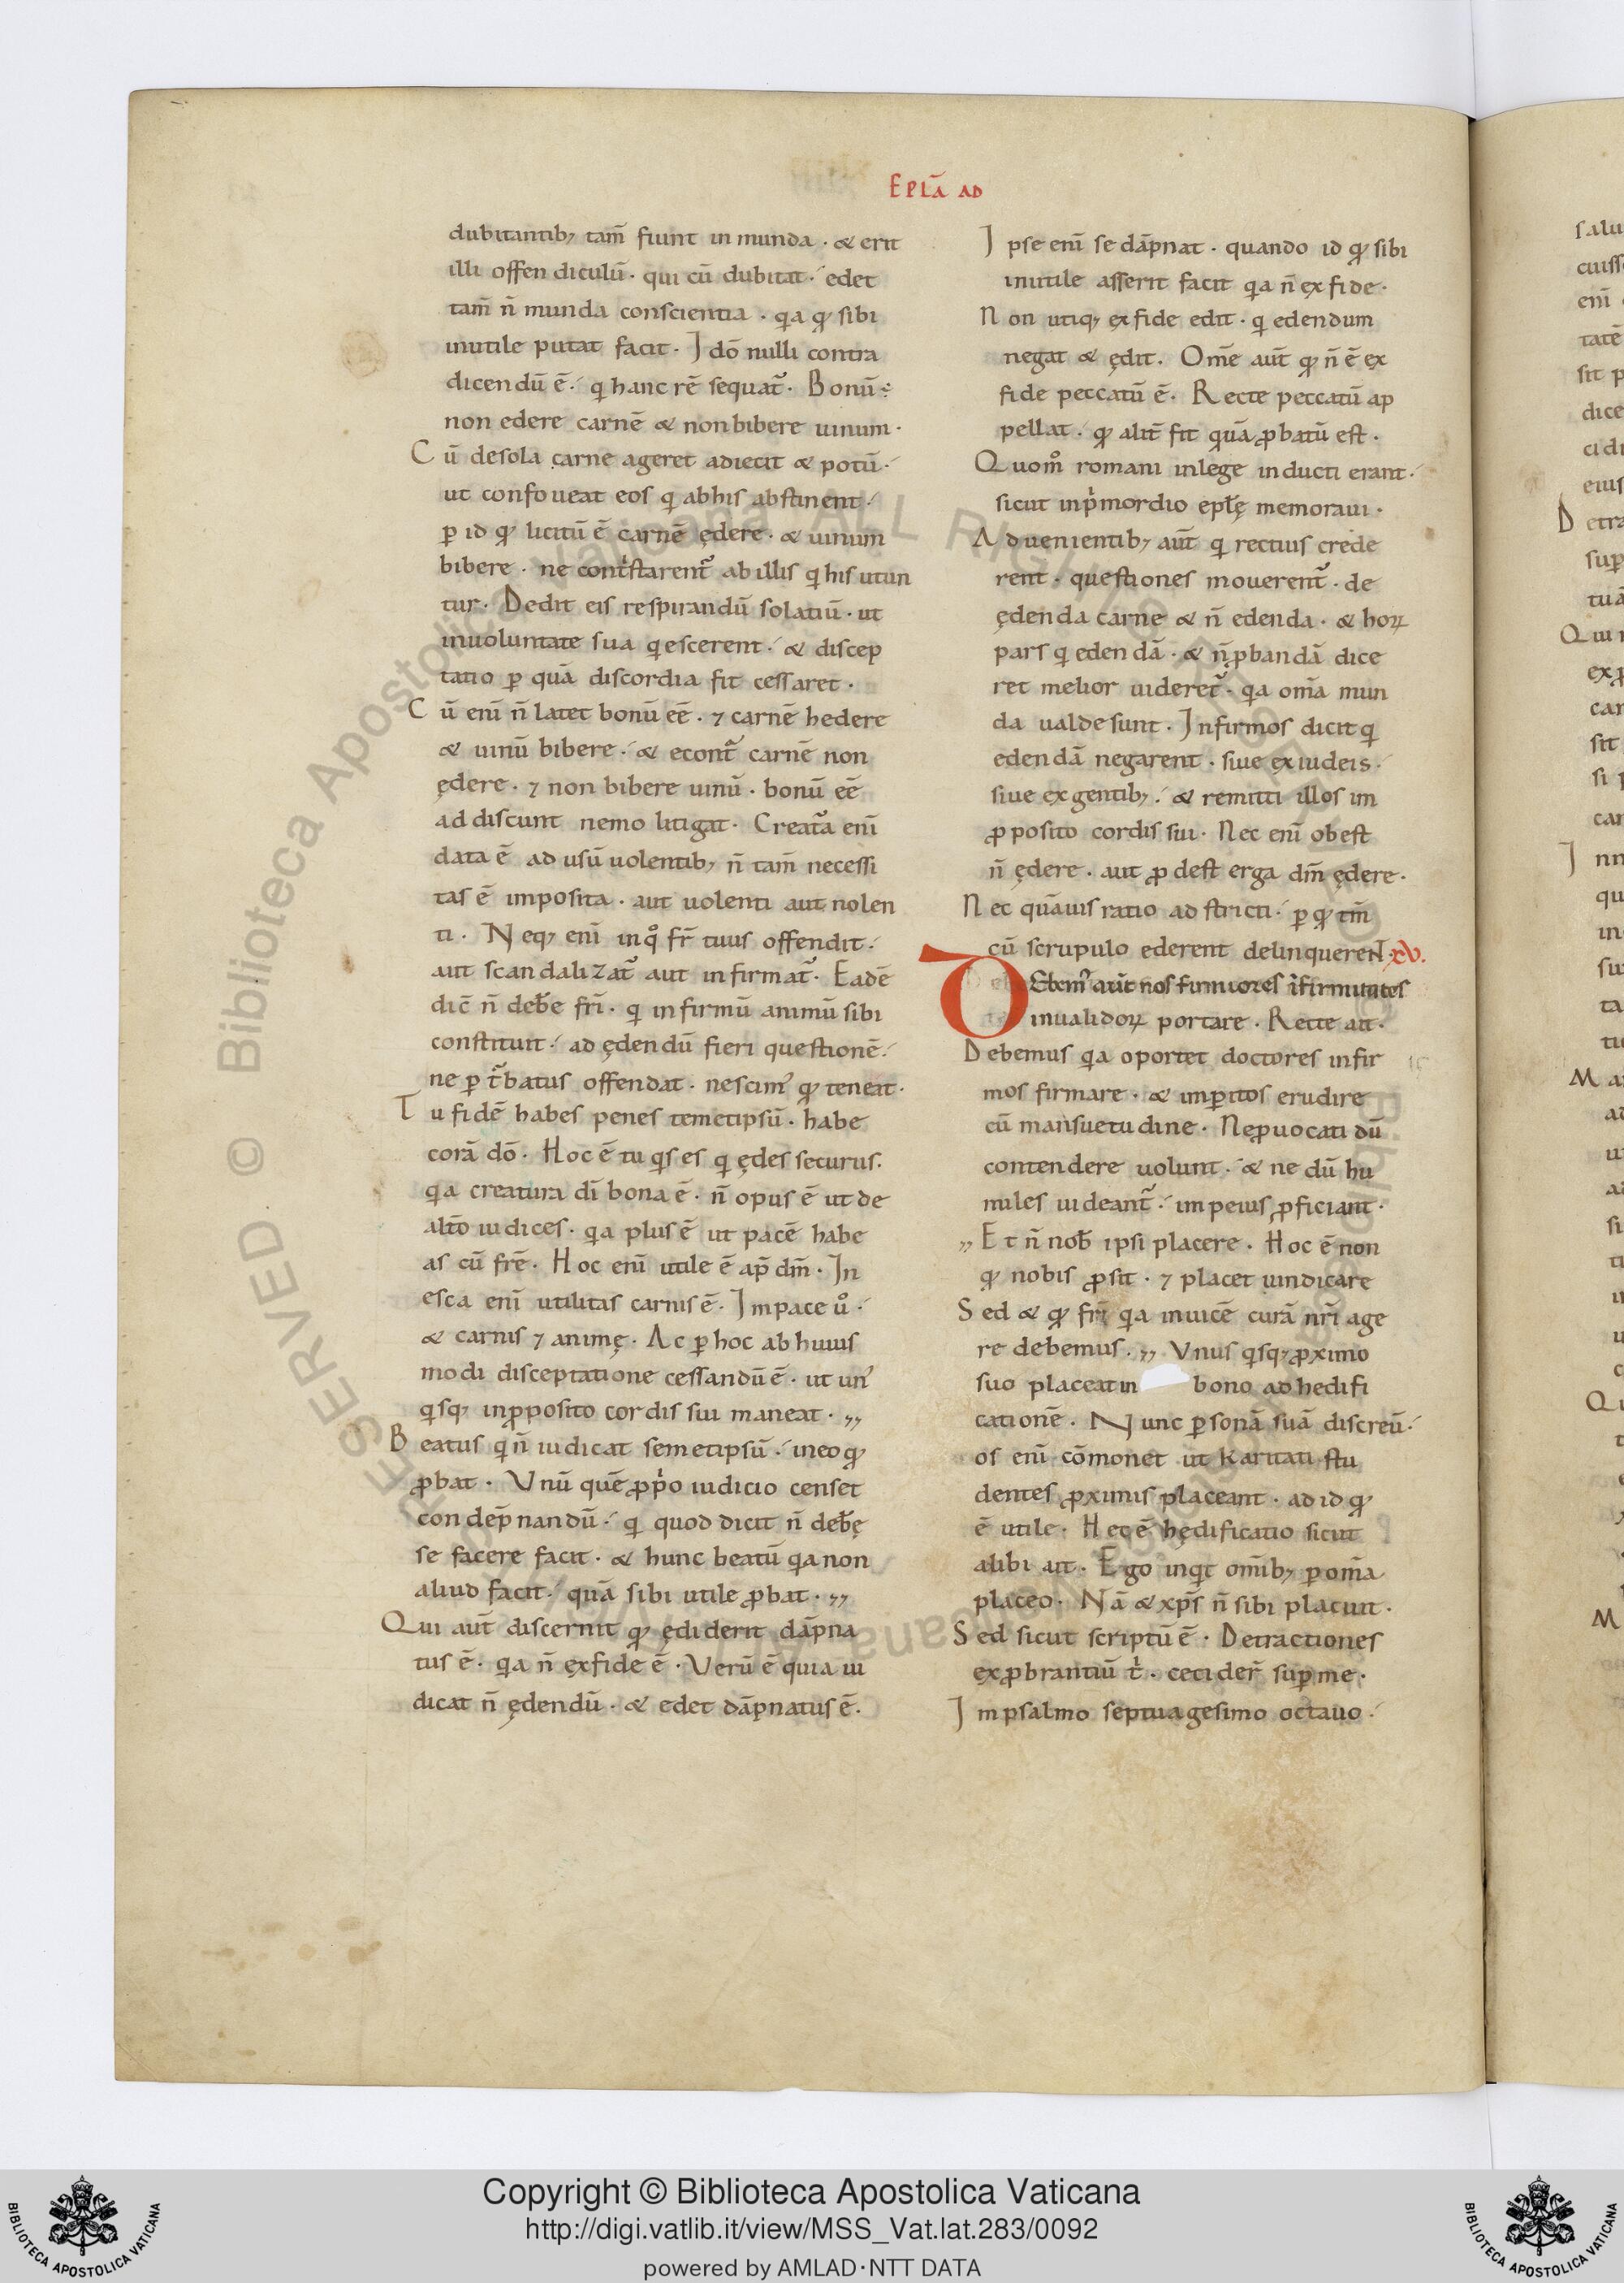 EPLA̅ AD
dubitantib; tam̅ fiunt in munda · & erit
illi offen diculu̅ · qui cu̅ dubitat · edet
tam̅ n̅ munda conscientia · qa qđ sibi
inutile putat facit · Ido̅ nulli contra
dicendu̅ e̅ · q hanc re̅ sequat᷑ · Bonu̅ ÷
non edere carne̅ & non bibere uinum ·
Cu̅ de sola carne ageret adiecit & potu̅ ·
ut confoueat eos q ab his abstinent ·
ꝑ id qđ licitu̅ e̅ carne̅ ędere · & uinum
bibere · ne cont͛starent᷑ ab illis q his utun
tur · Dedit eis respirandu̅ solatiu̅ · ut
in uoluntate sua qescerent · & discep
tatio ꝑ qua̅ discordia fit cessaret ·
Cu̅ eni̅ n̅ latet bonu̅ ee̅ · ⁊ carne̅ hedere
& uinu̅ bibere · & econt᷑ carne̅ non
ędere · ⁊ non bibere uinu̅ · bonu̅ ee̅
ad discunt nemo litigat · Creat᷑a eni̅
data e̅ ad usu̅ uolentib; n̅ tam̅ necessi
tas e̅ imposita · aut uolenti aut nolen
ti · Neq; eni̅ in qͦ fr̅ tuus offendit ·
aut scandalizat᷑ aut infirmat᷑ · Eade̅
dic̅ n̅ deb̅e fri̅ · q in firmu̅ animu̅ sibi
constituit · ad ędendu̅ fieri questione̅ ·
ne ꝑ t᷑batus offendat · nescim᾽ qđ teneat ·
Tu fide̅ habes penes temetipsu̅ · habe
cora̅ do̅ · Hoc e̅ tu qs es q ędes securus ·
qa creatura di̅ bona e̅ · n̅ opus e̅ ut de
alto̅ iudices · qa plus e̅ ut pace̅ habe
as cu̅ fre̅ · Hoc eni̅ utile e̅ ap̅ dm̅ · In
esca eni̅ utilitas carnis e̅ · In pace uͦ ·
& carnis ⁊ animę · Ac ꝑ hoc ab huius
modi disceptatione cessandu̅ e̅ · ut un᾽
qsq; in ꝓposito cordis sui maneat · ,,
Beatus q n̅ iudicat semetipsu̅ · in eo qđ
ꝓbat · Vnu̅ que̅ ꝓp͛o iudicio censet
condep̅nandu̅ · q quod dicit n̅ deb̅ę
se facere facit · & hunc beatu̅ qa non
aliud facit · qua̅ sibi utile ꝓbat · ,,
Qui aut̅ discernit qđ ędiderit da̅pna
tus e̅ · qa n̅ ex fide e̅ · Veru̅ e̅ quia iu
dicat n̅ ędendu̅ · & edet da̅pnatus e̅ ·
Ipse eni̅ se da̅pnat · quando id qđ sibi
inutile asserit facit qa n̅ ex fide ·
Non utiq; ex fide edit · q edendum
negat & ędit · Om̅e aut̅ qđ n̅ e̅ ex
fide peccatu̅ e̅ · Recte peccatu̅ ap
pellat · qđ alit̅ fit qua̅ ꝓbatu̅ est ·
Quomͦ romani in lege inducti erant ·
sicut in p͛mordio epl̅ę memoraui ·
Aduenientib; aut̅ q rectius crede
rent · questiones mouerent᷑ · de
ędenda carne & n̅ edenda · & hoꝝ
pars q edenda̅ · & n̅ ꝓbanda̅ dice
ret melior uideret᷑ · qa om̅a mun
da ualde sunt · Infirmos dicit q
edenda̅ negarent · siue ex iudeis ·
siue ex gentib; · & remitti illos im
ꝓposito cordis sui · Nec eni̅ obest
n̅ ędere · aut ꝓdest erga dm̅ ędere ·
Nec qua̅uis ratio adstricti · ꝑ qđ tm̅
cu̅ scrupulo ederent delinquerent · XV.
DEbem᾽ aut̅ nos firmiores i̅firmitates
inualidoꝝ portare · Recte ait ·
Debemus qa oportet doctores infir
mos firmare · & imꝑitos erudire
cu̅ mansuetudine · Ne ꝓuocati du̅
contendere uolunt · & ne du̅ hu
miles uideant᷑ · im peius ꝓficiant ·
,, Et n̅ nob̅ ipsi placere · Hoc e̅ non
qđ nobis ꝓsit · ⁊ placet uindicare
Sed & qđ fri̅ qa inuice̅ cura̅ nr̅i age
re debemus · ,, Vnus qsq; ꝓximo
suo placeat in bono ad hedifi
catione̅ · Nunc ꝑsona̅ sua̅ discreu̅ ·
os eni̅ co̅monet ut karitati stu
dentes ꝓximis placeant · ad id qđ
e̅ utile · Hec e̅ hędificatio sicut
alibi ait · Ego inqt om̅ib; ꝑ om̅a
placeo · Na̅ & xp̅s n̅ sibi placuit ·
Sed sicut scriptu̅ e̅ · Detractiones
exꝓbrantiu̅ t͛ · cecider̅ suꝑ me ·
Im psalmo septuagesimo octauo ·
Copyright © Biblioteca Apostolica Vaticana
http://digi.vatlib.it/view/MSS_Vat.lat.283/0092
powered by AMLAD·NTT DATA
BIBLIOTECA APOSTOLICA VATICANA
BIBLIOTECA APOSTOLICA VATICANA